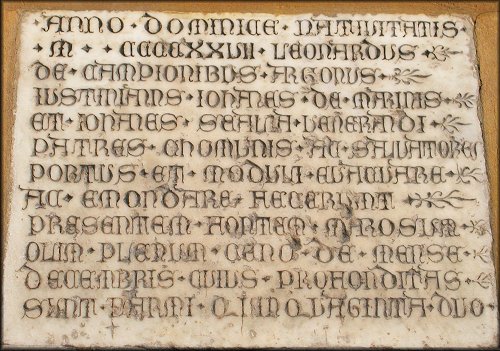 ANNO · DOMINICE · NATIVITATIS
· M · CCCCXXVII · LEONARDUS
DE · CAMPIONIBUS · ARGONUS
IUSTINIANS · IOHANES · DE · MARINIS
ET · IOHANES · SEALIA · VENERANDI
PATRES · CHOMUNIS · AC · SALVATORES
PORTUS · ET · MODULI · EVACUARE
AC · EMONDARE · FECERUNT
PRESENTEM · FONTEM · MAROSUM
OLIM · PLENUM · CENO · DE · MENSE
DECEMBRIS · CUIUS · PROFONDITAS
SUNT · PARMI · QUINQUAGINTA · DUO